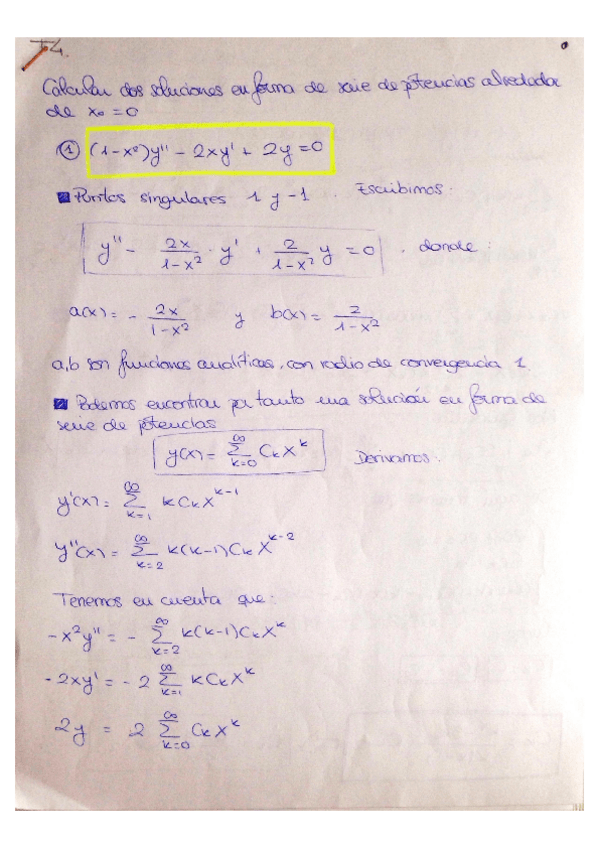 T4.
Calcular dos soluciones en forma de serie de potencias alrededor
de x₀ = 0
① (1-x²)y'' - 2xy' + 2y = 0
Puntos singulares 1 y -1. Escribimos:
y'' - \frac{2x}{1-x²} · y' + \frac{2}{1-x²} y = 0 . donde:
a(x) = - \frac{2x}{1-x²} y b(x) = \frac{2}{1-x²}
a, b son funciones analíticas, con radio de convergencia 1.
Podemos encontrar por tanto una solución en forma de
serie de potencias
y(x) = \sum_{k=0}^{∞} C_k x^k Derivamos:
y'(x) = \sum_{k=1}^{∞} k C_k x^{k-1}
y''(x) = \sum_{k=2}^{∞} k(k-1) C_k x^{k-2}
Tenemos en cuenta que:
-x²y'' = - \sum_{k=2}^{∞} k(k-1) C_k x^k
-2xy' = -2 \sum_{k=1}^{∞} k C_k x^k
2y = 2 \sum_{k=0}^{∞} C_k x^k